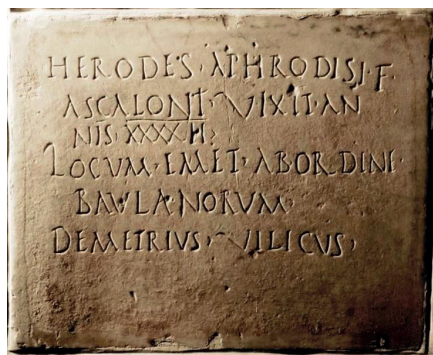 HERODES · APHRODISI · F
ASCALONT · VIXIT · AN
NIS · XXXXII ·
LOCVM · EMET · ABORDINE ·
BAVLANORVM ·
DEMETRIVS · VILICVS ·